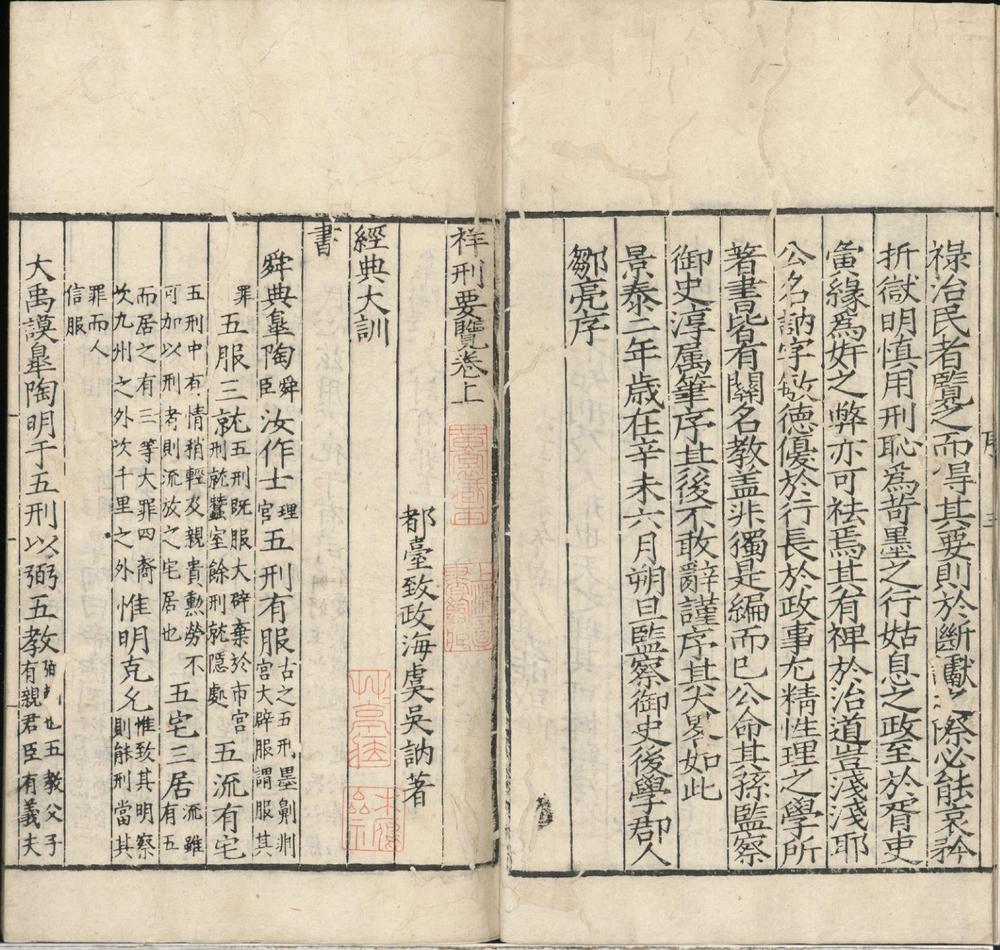 祿治民者覽之而得其要則於斷讞之際必能哀矜
折獄明慎用刑恥爲苛墨之行姑息之政至於胥吏
夤緣爲奸之弊亦可祛焉其有裨於治道豈淺淺耶
公名訥字敏德優於行長於政事尤精性理之學所
著書皆有關名教盖非獨是編而已公命其孫監察
御史淳属筆序其後不敢辭謹序其大畧如此
景泰二年歲在辛未六月朔旦監察御史後學郡人
鄒亮序
祥刑要覽卷上
都臺致政海虞吳訥著
經典大訓
書
舜典臯陶舜臣汝作士理官五刑有服古之五刑墨劓剕宫大辟服謂服其
罪五服三就五刑既服大辟棄於市宫刑就蠶室餘刑就隱處五流有宅
五刑中有情稍輕及親貴勲勞不可加以刑者則流放之宅居也五宅三居流雖有五
而居之有三等大罪四裔次九州之外次千里之外惟明克允惟致其明察則能刑當其
罪而人信服
大禹謨臯陶明于五刑以弼五教弼也五教父子有親君臣有義夫